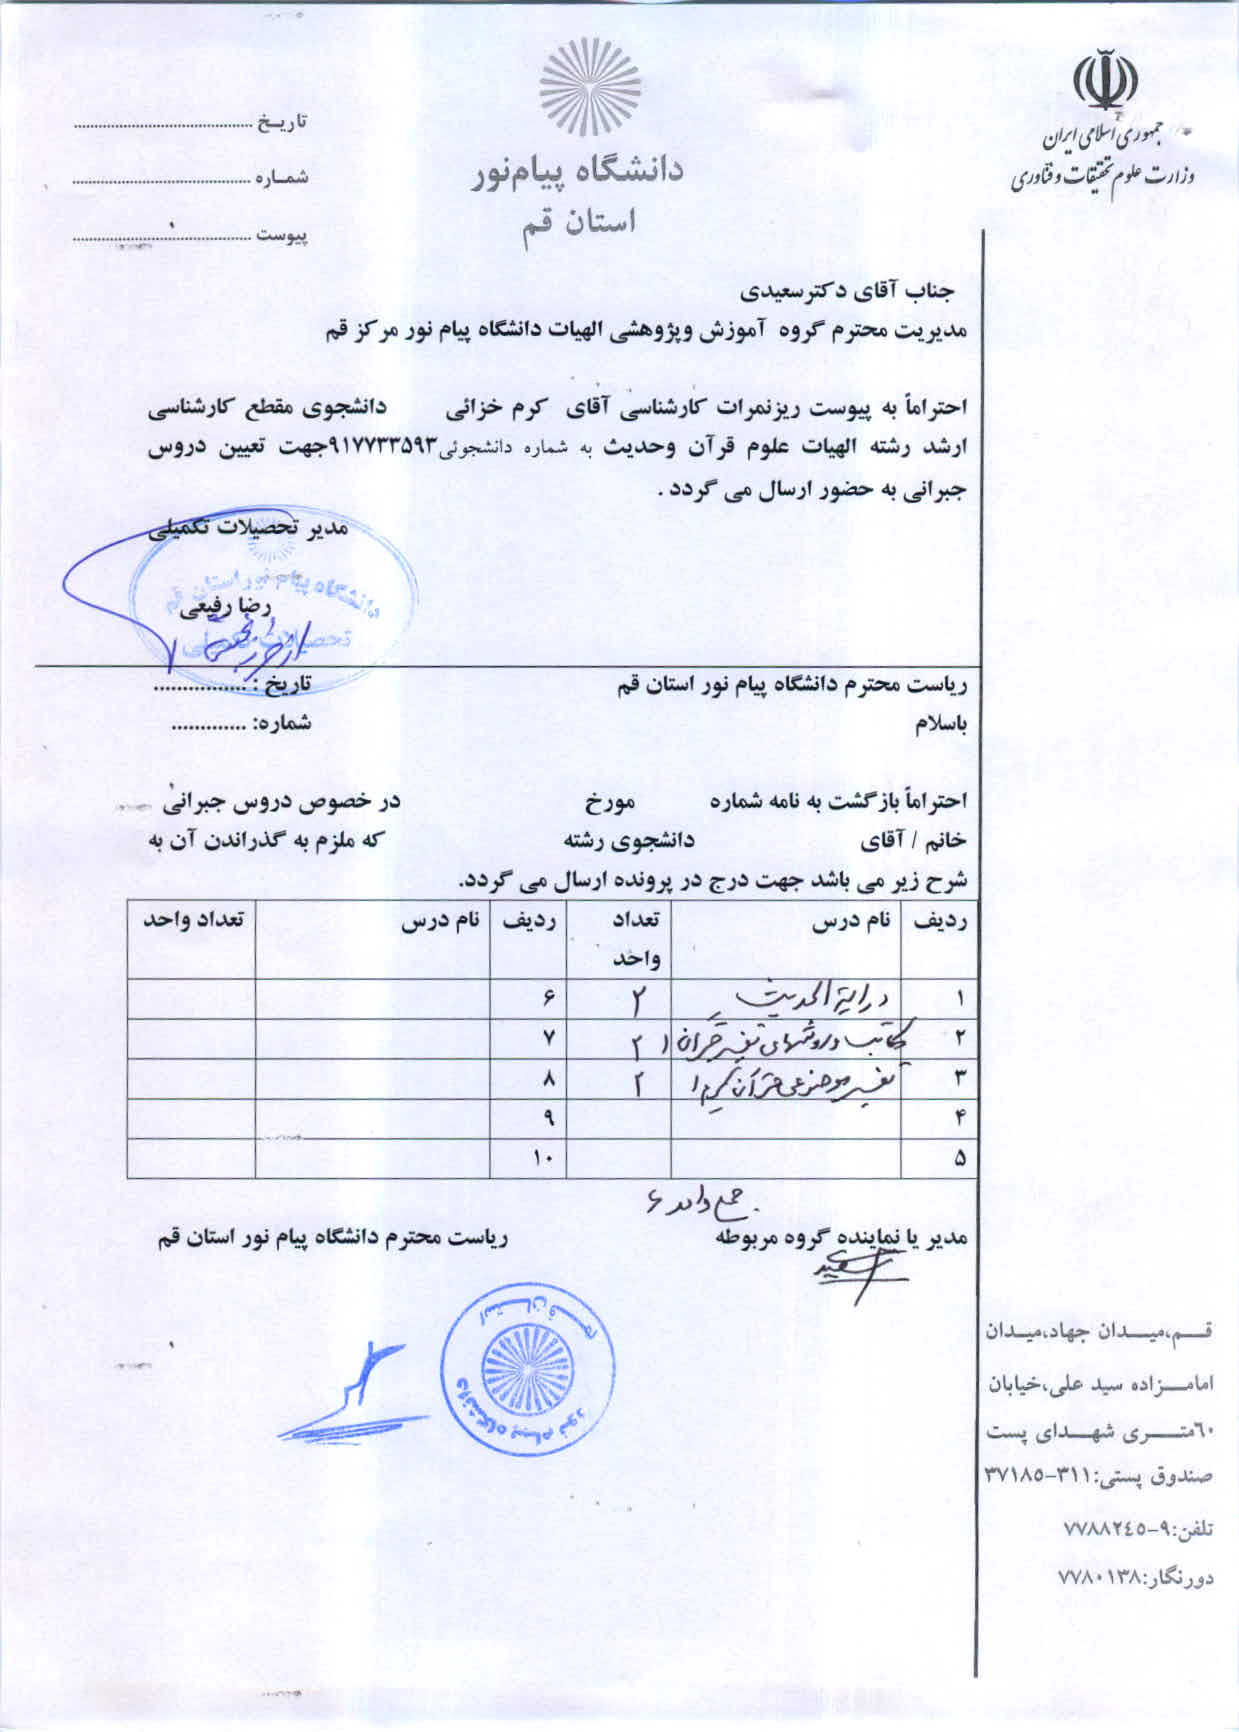 جمهوری اسلامی ایران
وزارت علوم تحقیقات و فناوری
دانشگاه پیام‌نور
استان قم
تاریـخ ......................................
شمـاره ......................................
پیوست ......................................
جناب آقای دکترسعیدی
مدیریت محترم گروه آموزش وپژوهشی الهیات دانشگاه پیام نور مرکز قم
احتراماً به پیوست ریزنمرات کارشناسی آقای کرم خزائی دانشجوی مقطع کارشناسی
ارشد رشته الهیات علوم قرآن وحدیث به شماره دانشجوئی۹۱۷۷۳۳۵۹۳جهت تعیین دروس
جبرانی به حضور ارسال می گردد .
مدیر تحصیلات تکمیلی
دانشگاه پیام نور استان قم
رضا رفیعی
تحصیلات تکمیلی
ریاست محترم دانشگاه پیام نور استان قم
تاریخ : ................
باسلام
شماره: .............
احتراماً بازگشت به نامه شماره مورخ در خصوص دروس جبرانی
خانم / آقای دانشجوی رشته که ملزم به گذراندن آن به
شرح زیر می باشد جهت درج در پرونده ارسال می گردد.
ردیف نام درس تعداد واحد ردیف نام درس تعداد واحد
۱ درایة الحدیث ۲ ۶
۲ مکاتب و روشهای تفسیر قرآن ۱ ۲ ۷
۳ تفسیر موضوعی قرآن کریم ۱ ۲ ۸
۴ ۹
۵ ۱۰
جمع واحد ۶
مدیر یا نماینده گروه مربوطه
ریاست محترم دانشگاه پیام نور استان قم
استان قم
دانشگاه پیام نور
قـــم،میـــدان جهاد،میـدان
امامـــزاده سید علی،خیابان
٦٠متـــری شهـــدای پست
صندوق پستی:۳۱۱-۳۷۱۸۵
تلفن:۹-۷۷۸۸۲٤۵
دورنگار:۷۷۸۰۱۳۸